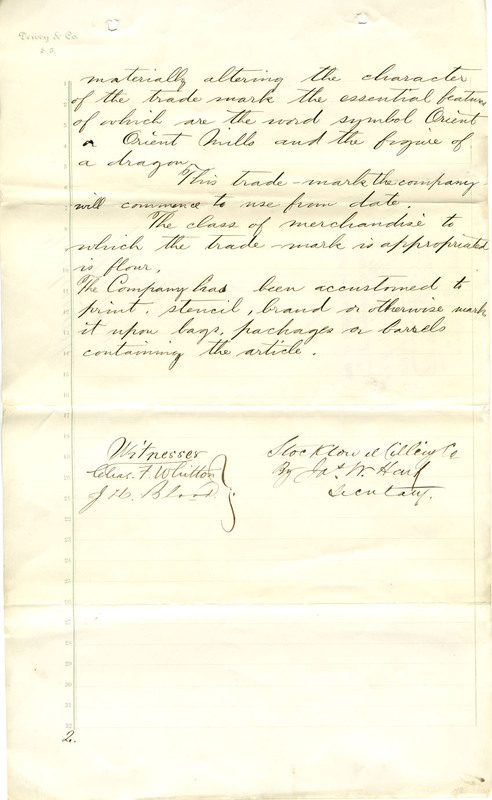 Dewey & Co.
S. F.
materially altering the character
of the trade mark the essential features
of which are the word symbol Orient
or Orient Mills and the figure of
a dragon.
This trade-mark the company
will commence to use from date.
The class of merchandise to
which the trade-mark is appropriated
is flour.
The Company has been accustomed to
print, stencil, brand or otherwise mark
it upon bags, packages or barrels
containing the article.
Witnesses
Chas. F. Whitton
J. H. Blood
Stockton Milling Co
By Jas. W. Hart
Secretary.
2.